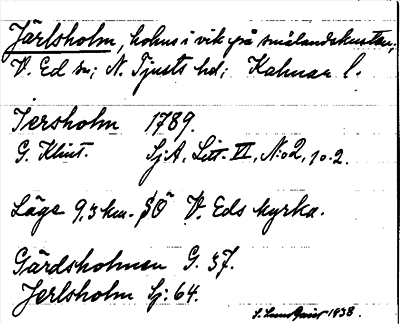 Järlsholm, holme i vik på smålandskusten;
V. Ed sn; N. Tjusts hd; Kalmar l.
Jersholm 1789.
G. Klint. SjA, Litt. VI, No2, 10.2.
Läge 9,3 km. SÖ V. Eds kyrka.
Gärdsholmen G. 37.
Jerlsholm Sj: 64.
1938.